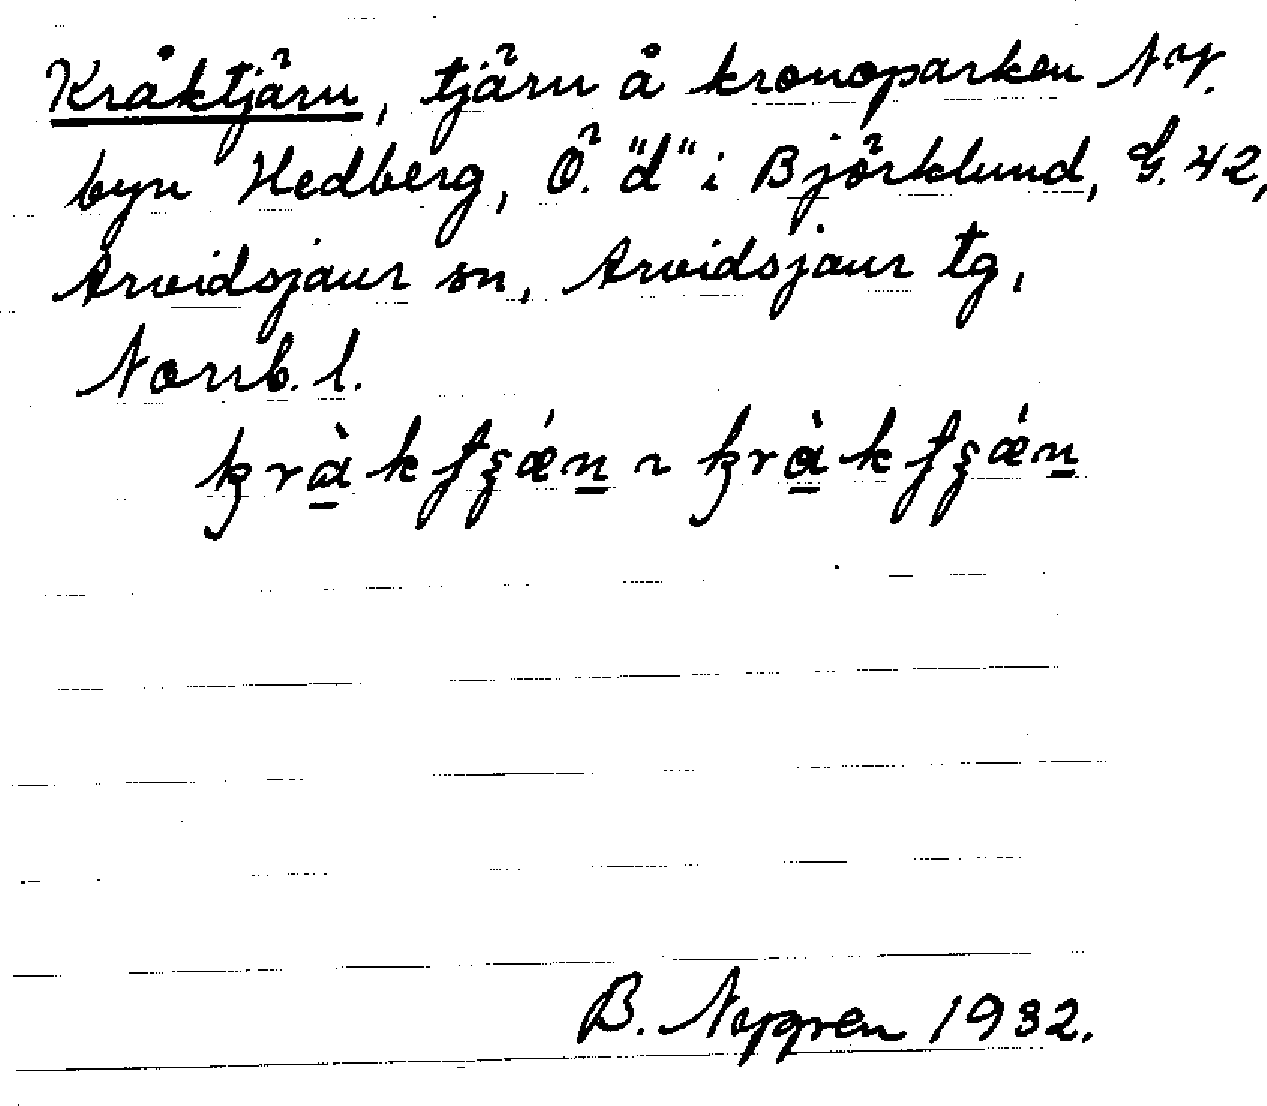 Kråktjärn, tjärn å kronoparken NV.
byn Hedberg, Ö. "d" i Björklund, G. 42,
Arvidsjaur sn, Arvidsjaur tg,
Norrb. l.
B. Nygren 1932.